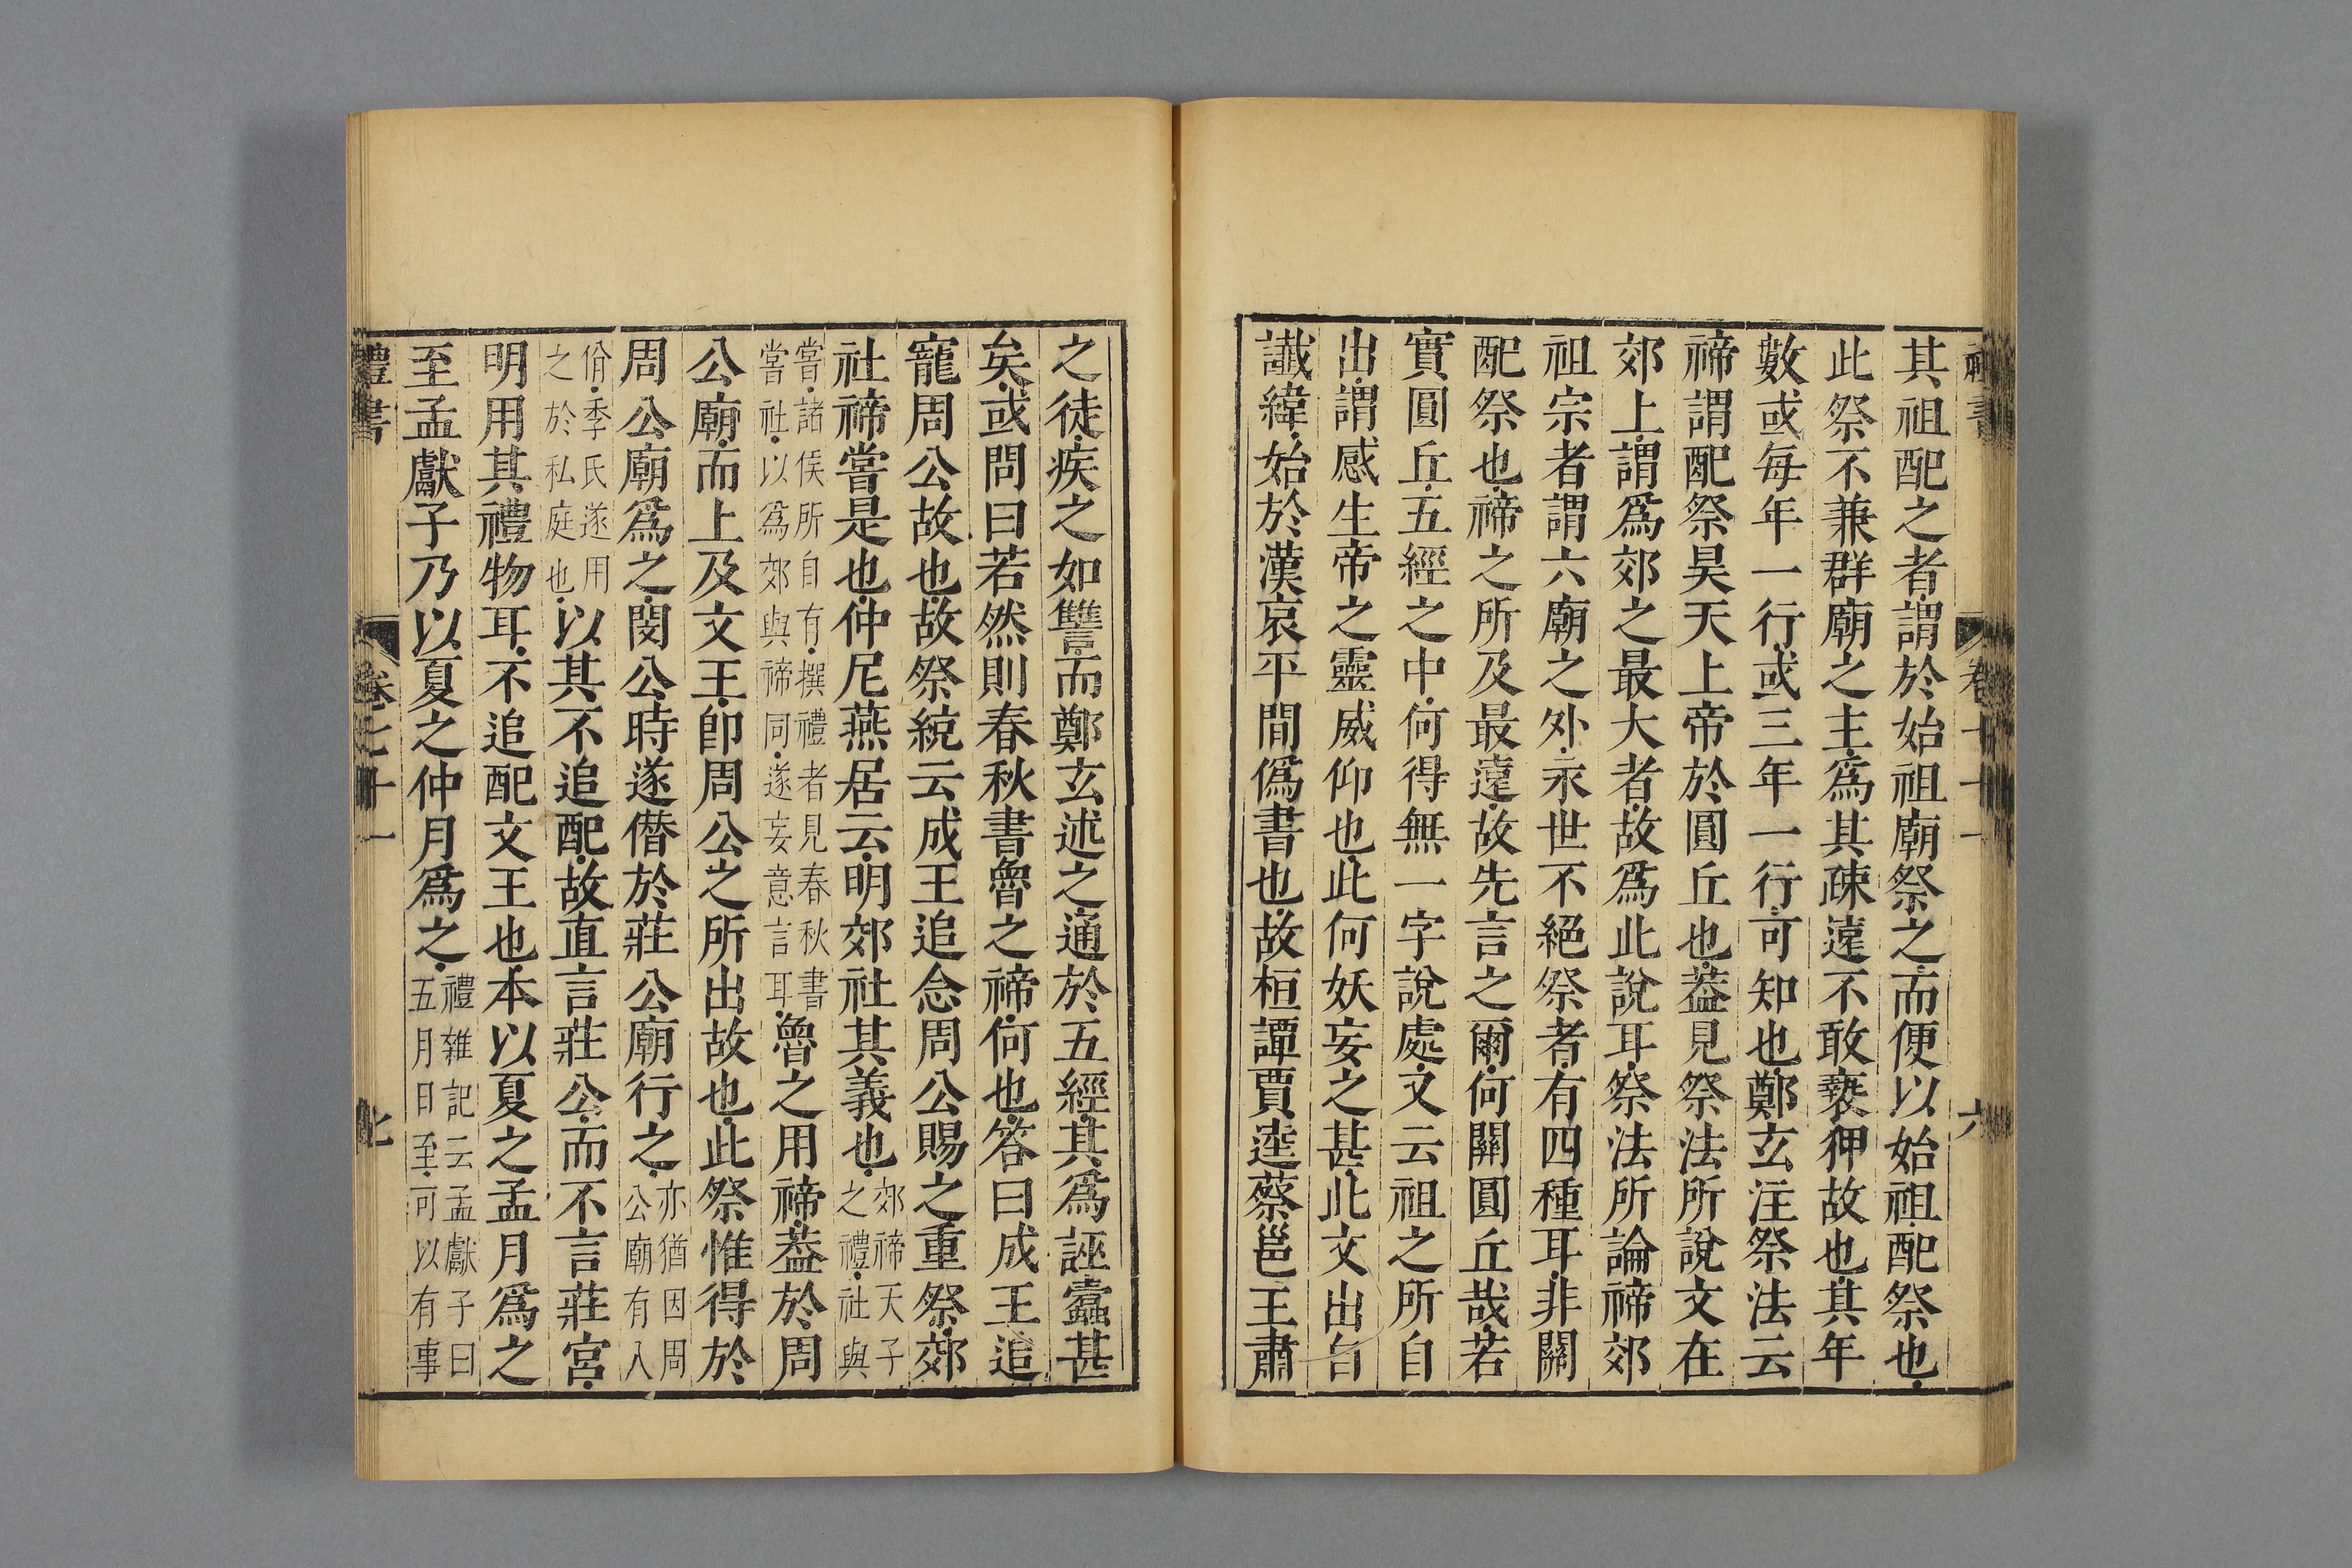 其祖配之者謂於始祖廟祭之而便以始祖配祭也
此祭不兼群廟之主爲其疎遠不敢褻狎故也其年
數或每年一行或三年一行可知也鄭玄注祭法云
禘謂配祭昊天上帝於圓丘也葢見祭法所說文在
郊上謂爲郊之最大者故爲此說耳祭法所論禘郊
祖宗者謂六廟之外永世不絕祭者有四種耳非關
配祭也禘之所及最遠故先言之爾何關圓丘哉若
實圓丘五經之中何得無一字說處又云祖之所自
出謂感生帝之靈威仰也此何妖妄之甚此文出自
讖緯始於漢哀平間僞書也故桓譚賈逵蔡邕王肅
之徒疾之如讐而鄭玄述之通於五經其爲誣蠹甚
矣或問曰若然則春秋書魯之禘何也答曰成王追
寵周公故也故祭統云成王追念周公賜之重祭郊
社禘嘗是也仲尼燕居云明郊社其義也郊禘天子之禮社與
嘗諸侯所自有撰禮者見春秋書嘗社以爲郊與禘同遂妄意言耳魯之用禘葢於周
公廟而上及文王卽周公之所出故也此祭惟得於
周公廟爲之閔公時遂僭於莊公廟行之亦猶因周公廟有八
佾季氏遂用之於私庭也以其不追配故直言莊公而不言莊宮
明用其禮物耳不追配文王也本以夏之孟月爲之
至孟獻子乃以夏之仲月爲之禮雜記云孟獻子曰五月日至可以有事
禮書
卷七十一
七